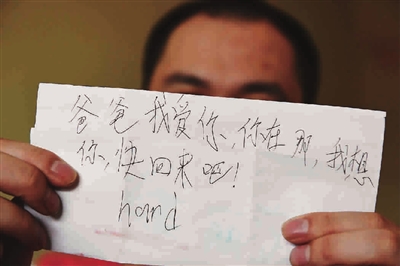 爸爸我爱你,你在那,我想
你,快回来吧!
hand